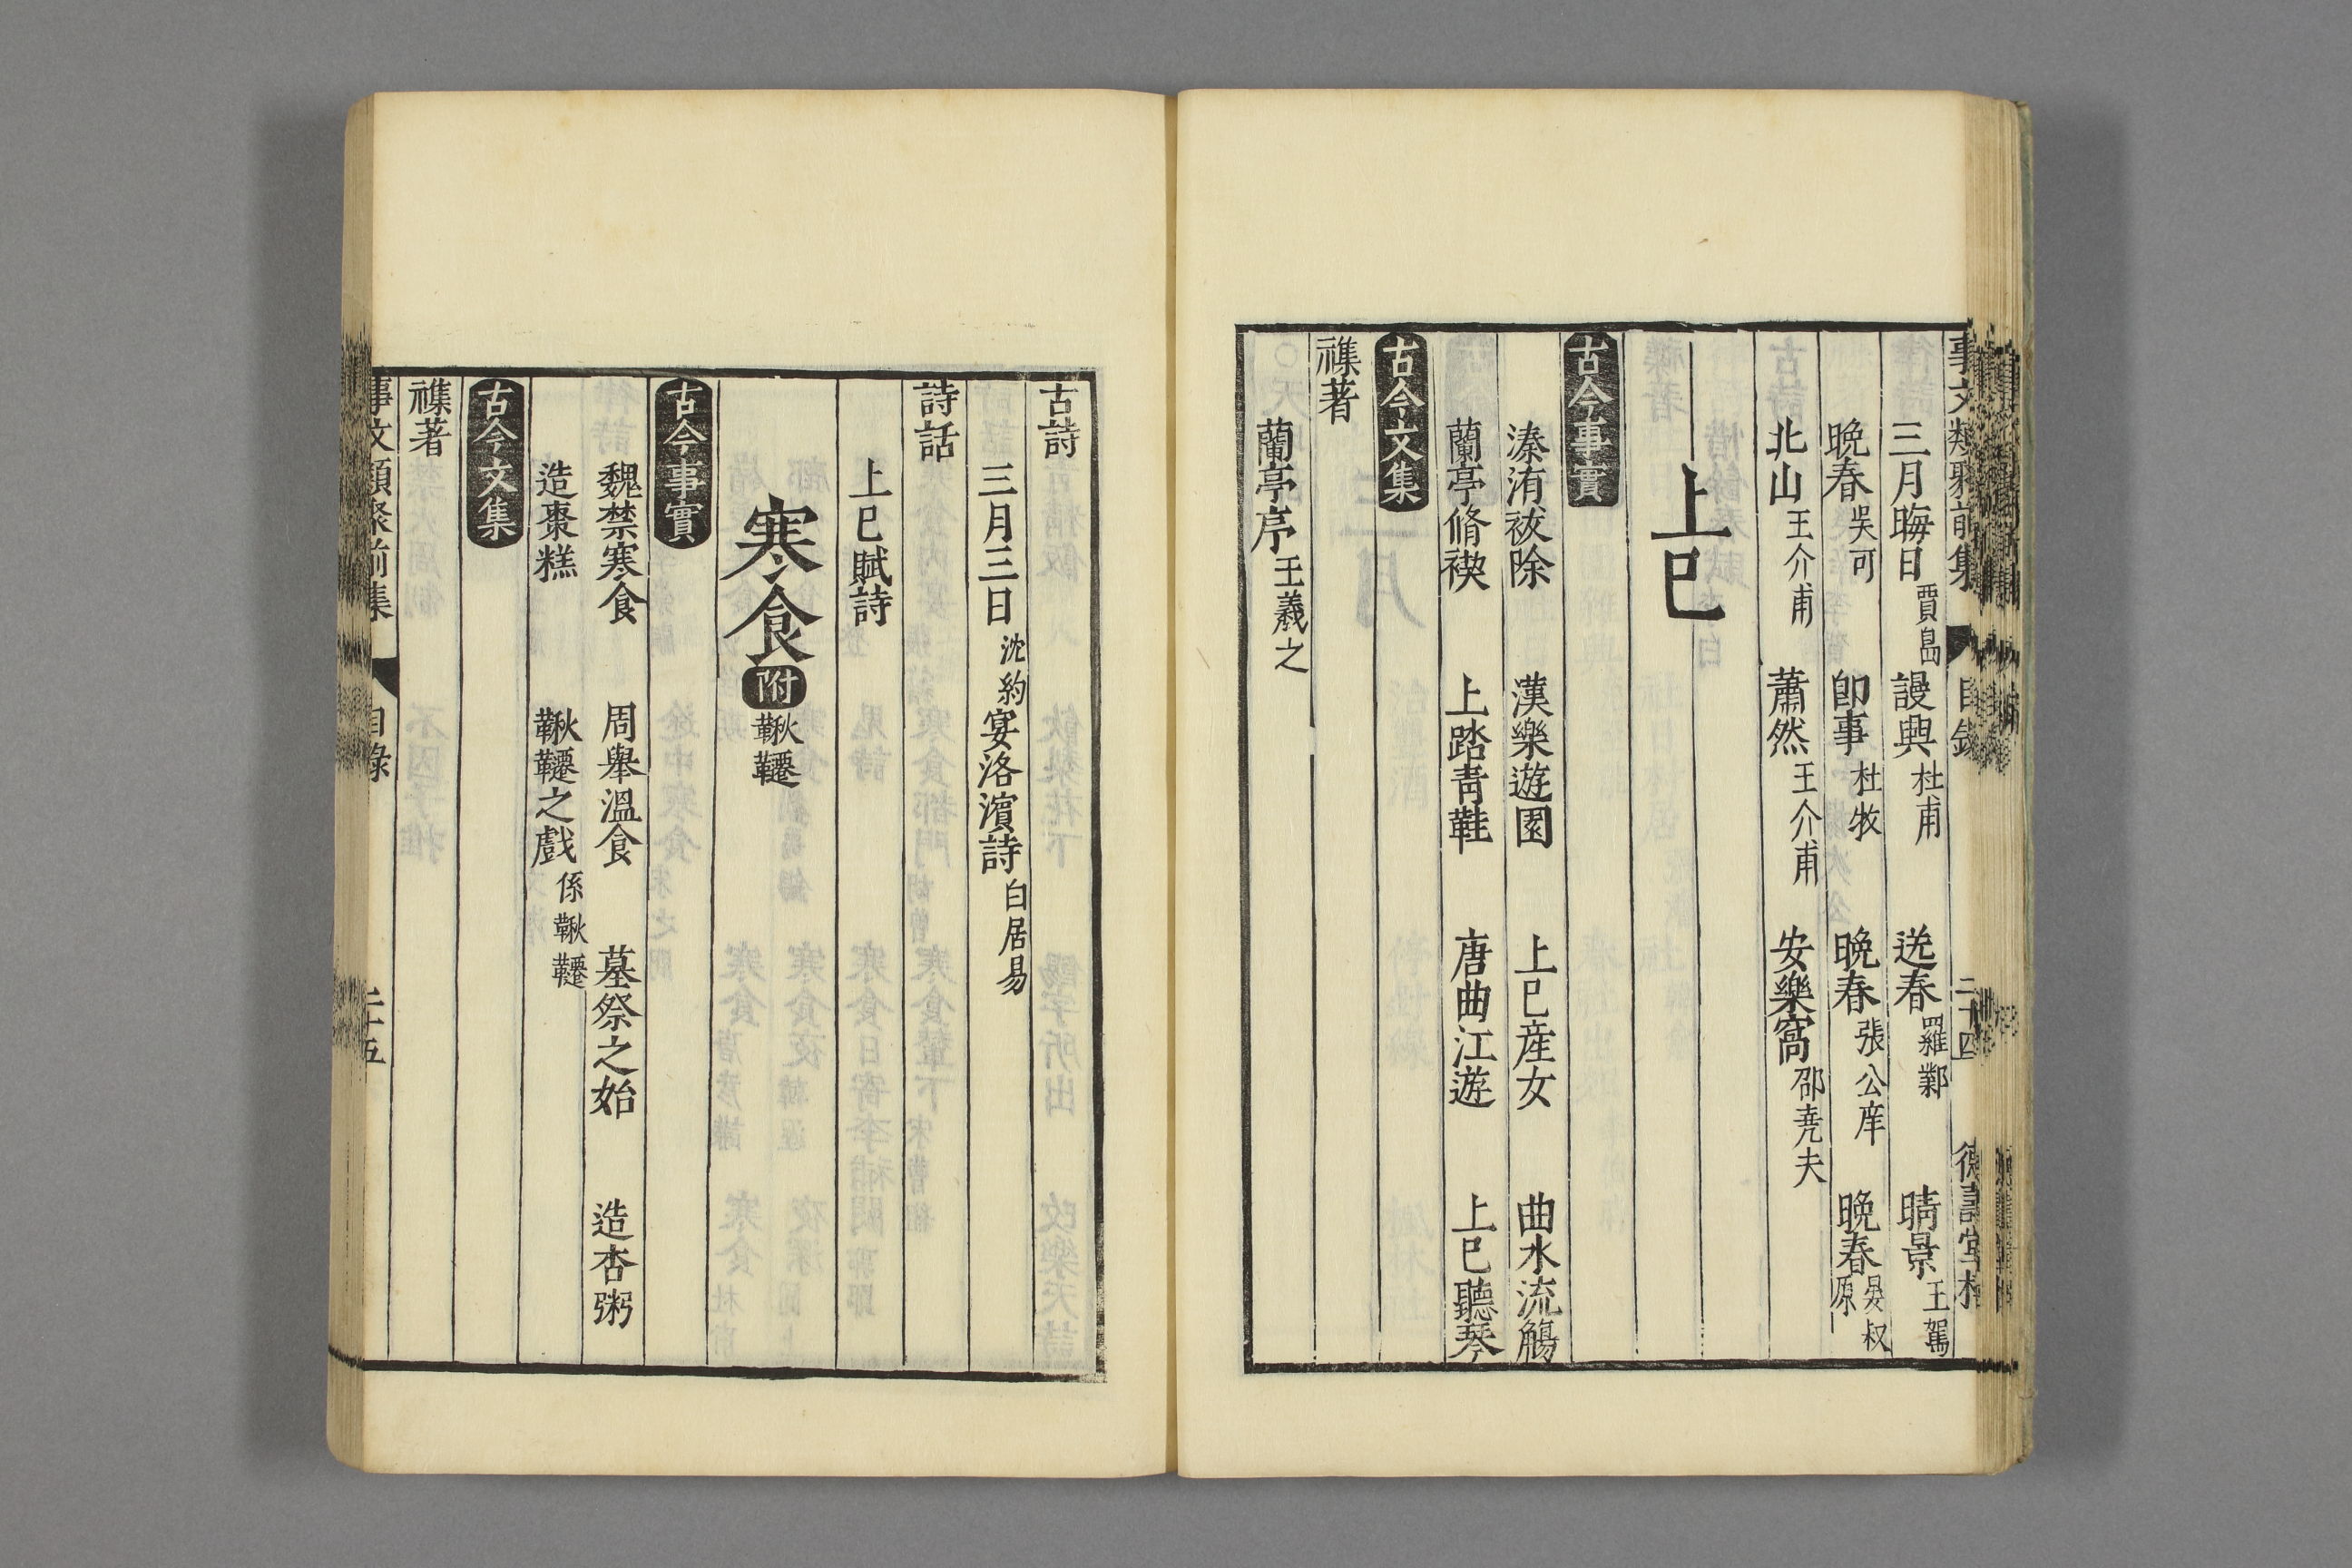 三月晦日 賈島 謾興 杜甫 送春 羅鄴 晴景 王駕
晚春 吳可 卽事 杜牧 晚春 張公庠 晚春 晏叔原
北山 王介甫 蕭然 王介甫 安樂窩 邵堯夫
上巳
古今事實
溱洧祓除 漢樂遊園 上巳産女 曲水流觴
蘭亭脩禊 上踏靑鞋 唐曲江遊 上巳聽琴
古今文集
襍著
蘭亭序 王羲之
古詩
三月三日 沈約 宴洛濱詩 白居易
詩話
上巳賦詩
寒食 附 鞦韆
古今事實
魏禁寒食 周舉溫食 墓祭之始 造杏粥
造棗糕 鞦韆之戲 係鞦韆
古今文集
襍著
事文類聚前集 目錄 二十五